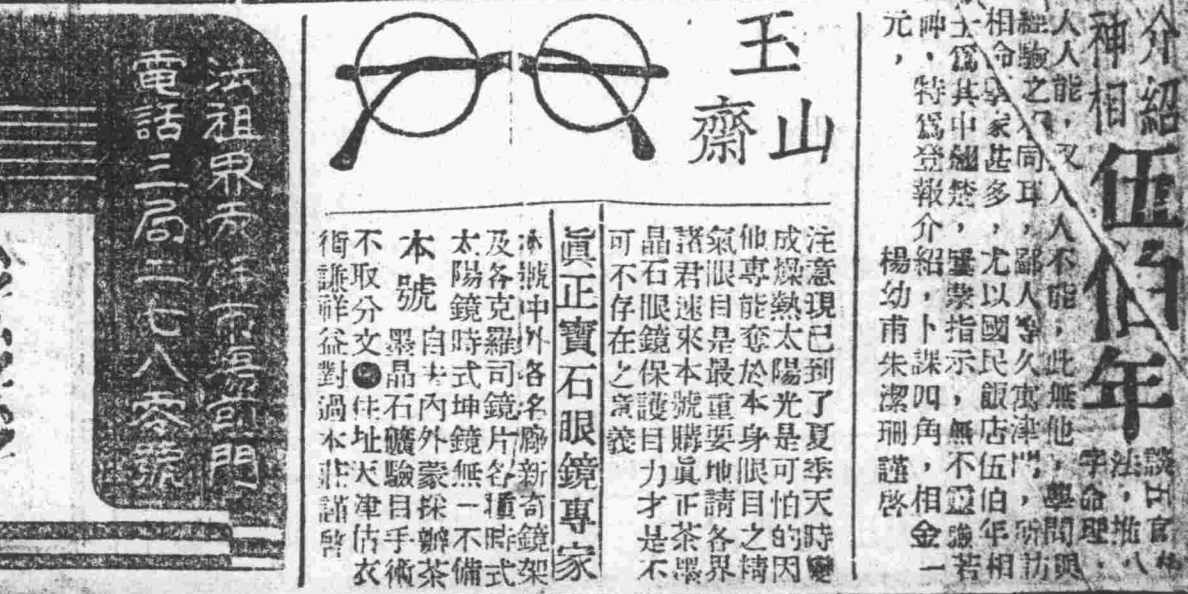 介紹
神相
伍伯年
談口官格
法，推八
字命理，
人人能，又人人不能，此無他，學問與
經驗之不同耳，鄙人等久寓津門，所訪
相命學家甚多，尤以國民飯店伍伯年相
士爲其中翹楚，墨衆指示，無不靈驗若
神，特爲登報介紹，卜課四角，相金一
元，
楊幼甫朱潔珊謹啓
玉山齋
注意現已到了夏季天時變
成燥熱太陽光是可怕的因
他專能奪於本身眼目之精
氣眼目是最重要地請各界
諸君速來本號購眞正茶墨
晶石眼鏡保護目力才是不
可不存在之意義
眞正寶石眼鏡專家
本號中外各名廠新奇鏡架
及各克羅司鏡片各種時式
太陽鏡時式坤鏡無一不備
本號自去內外蒙採辦茶
墨晶石礦驗目手術
不取分文●住址天津估衣
街謙祥益對過本莊謹啓
法租界 市場 門
電話三局二七八零號